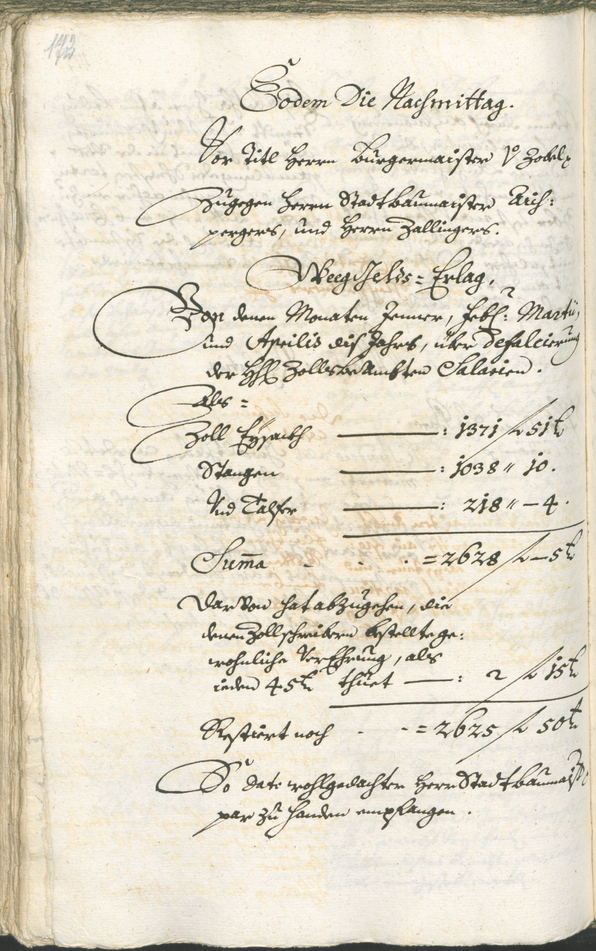 173
Eodem Die Nachmittag.
Vor Titl Herrn Burgermaister
Zugegen Herrn Stadtbaumaister Aich-
pergers, und Herrn Zallingers.
Weeggelts-Erlag,
Von denen Monaten Jenner, Feb: Martij,
und Aprilis diss Jahrs, über Defalcierung
der HH Zollsbeambten Salarien.
Als:
Zoll Eysackh ——: 1371 f 51 k
Stangen ——: 1038 " 10.
Und Talfer ——: 218 " — 4.
Summa - - - = 2628 f — 5 k
Darvon hat abzugehen, die
denen Zollschreibern bestelte ge-
wohnliche Verehrung, als
ieden 45 k thuet ——: 2 f 15 k
Restiert noch - - = 2625 f 50 k
So dato wohlgedachter Herr Stadtbaumaister
par zu Handen empfangen.